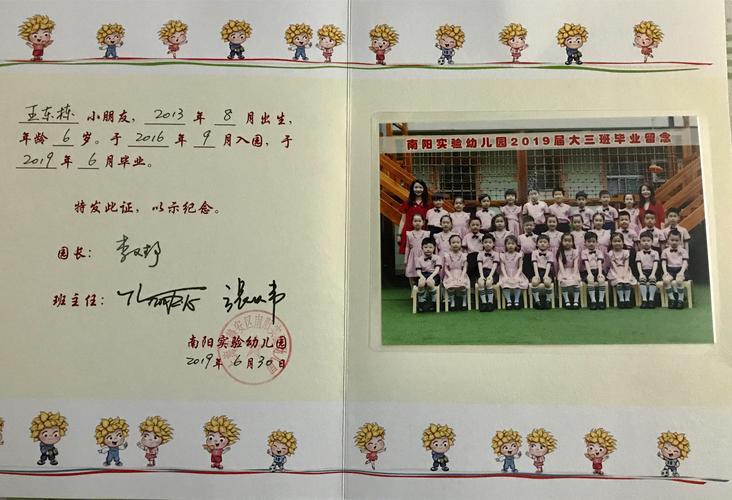 王东栋 小朋友，2013 年 8 月出生，
年龄 6 岁。于 2016 年 9 月入园，于
2019 年 6 月毕业。
特发此证，以示纪念。
园长：
班主任：
南阳实验幼儿园
2019年 6月30日
南阳实验幼儿园2019届大三班毕业留念